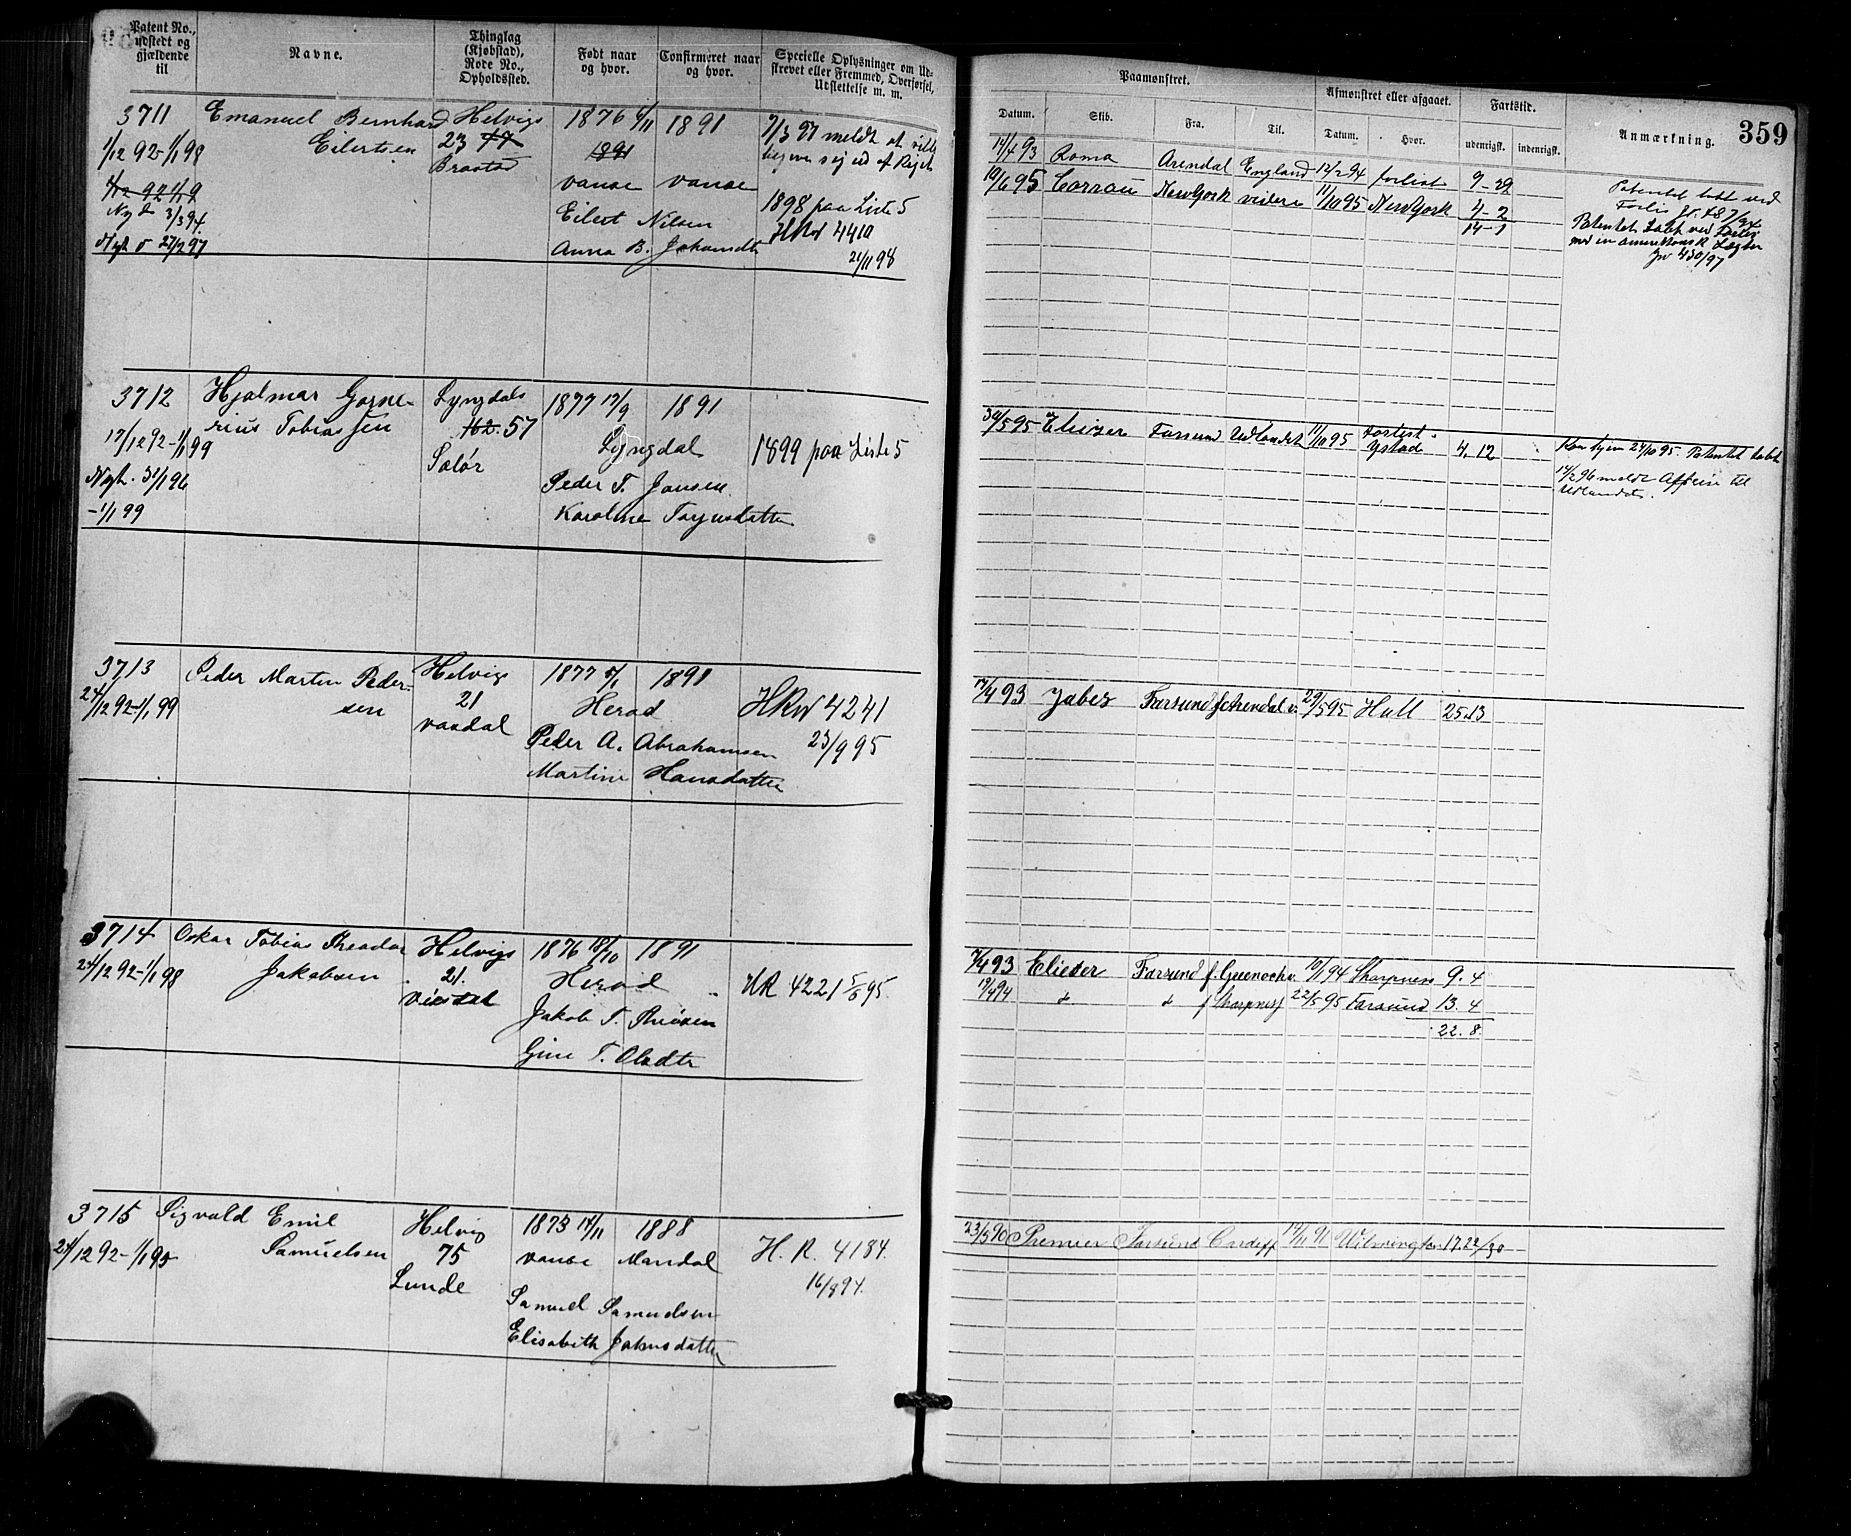 Patent No., udstedt og gjældende til
Navne.
Thinglag (Kjøbstad), Rode No., Opholdssted.
Født naar og hvor.
Confirmeret naar og hvor.
Specielle Oplysninger om Udstrevet eller Fremmed, Overførsel, Udslettelse m. m.
Paamønstret.
Afmønstret eller afgaaet.
Fartstid.
Anmærkning.
359
Datum.
Skib.
Fra.
Til.
Datum.
Hvor.
udenrigsk.
indenrigsk.
3711 Emanuel Bernhard Helvigs 1876 6/11 1891 7/3 97 meldt at ville
1/12 92-1/1 98 Eilertsen 23 77 1891 begive sig ud af Riget
Braastad
1/12 92 1/1 9 Vanse Vanse
Ny 3/3 94. Eilert Nilsen 1898 paa Liste 5
Nyt 27/2 97 Anna B. Johansdtr HRW 4410
21/11 98
14/4 93 Roma Arendal England 12/2 94 forlist 9-29
19/6 95 Corrau NewYork videre 11/10 95 NewYork 4-2
14-1
Patentet tabt ved
Forlis
Patentet tabt ved Forlis
med en amerikansk Lægter
Jv 430/97
3712 Hjalmar Gorne- Lyngdals 1877 17/9 1891
rius Tobiassen 162. 57
17/12 92-1/1 99 Lyngdal 1899 paa Liste 5
Salør
Nyt. 31/1 96 Peder T. Jansen
-1/1 99 Karoline Torjusdatter
30/5 95 Eliezer Farsund Udlandet 11/10 95 forlist Ystad 4. 12
Kom hjem 24/10 95. Patentet tabt
14/2 96 meldt Afreise til
Udlandet.
3713 Peder Martin Peder- Helvigs 1877 5/1 1891
24/12 92-1/1 99 sen 21 Herad HRW 4241
Vaadal Peder A. Abrahamsen 23/9 95
Martine Hansdatter
17/4 93 Jabez Farsund f. Arendal v. 29/5 95 Hull 25.13
3714 Oskar Tobias Theodor Helvigs 1876 18/10 1891
24/12 92-1/1 98 Jakobsen 21. Herad HR 4221 5/8 95.
Jakob T. Thiøsen
Gine T. Olsdtr
7/4 93 Elieser Farsund f. Greenock v. 10/1 94 Sharpness 9. 4
19/4 94 " " f Sharpness 22/5 95 Farsund 13. 4
22. 8.
3715 Sigvald Emil Helvig 1873 14/11 1888
24/12 92-1/1 95 Samuelsen 75 Vanse Mandal H. R. 4184.
Lunde 16/8 94.
Samuel Samuelsen
Elisabeth Jahnsdatter
23/5 90 Premier Farsund Cardiff 14/11 91 Wilmington 17.22/30